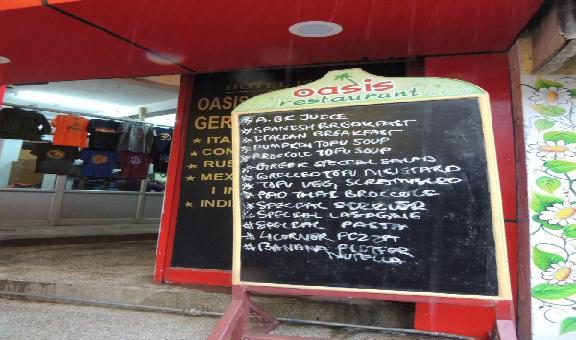 oasis
restaurant
* A.B.C JUICE
* SPANESH BREAKFAST
* ITALIAN BREAKFAST
* PUMPKIN TOFU SOUP
* BROCOLE TOFU SOUP
* GREEK SPECIAL SALAD
* GRELLED TOFU MUSTARD
* TOFU VEG SCRAMBULED
* PAD THAI BROCCOLE
* SPECIAL SIZZLER
* SPECIAL LASAGANE
* SPECIAL PASTA
* 4 CORNER PEZZA
* BANANA FLITTER
NUTELLA
OASIS
GER
* ITA
* CON
* RUS
* MEX
* I IN
* INDI